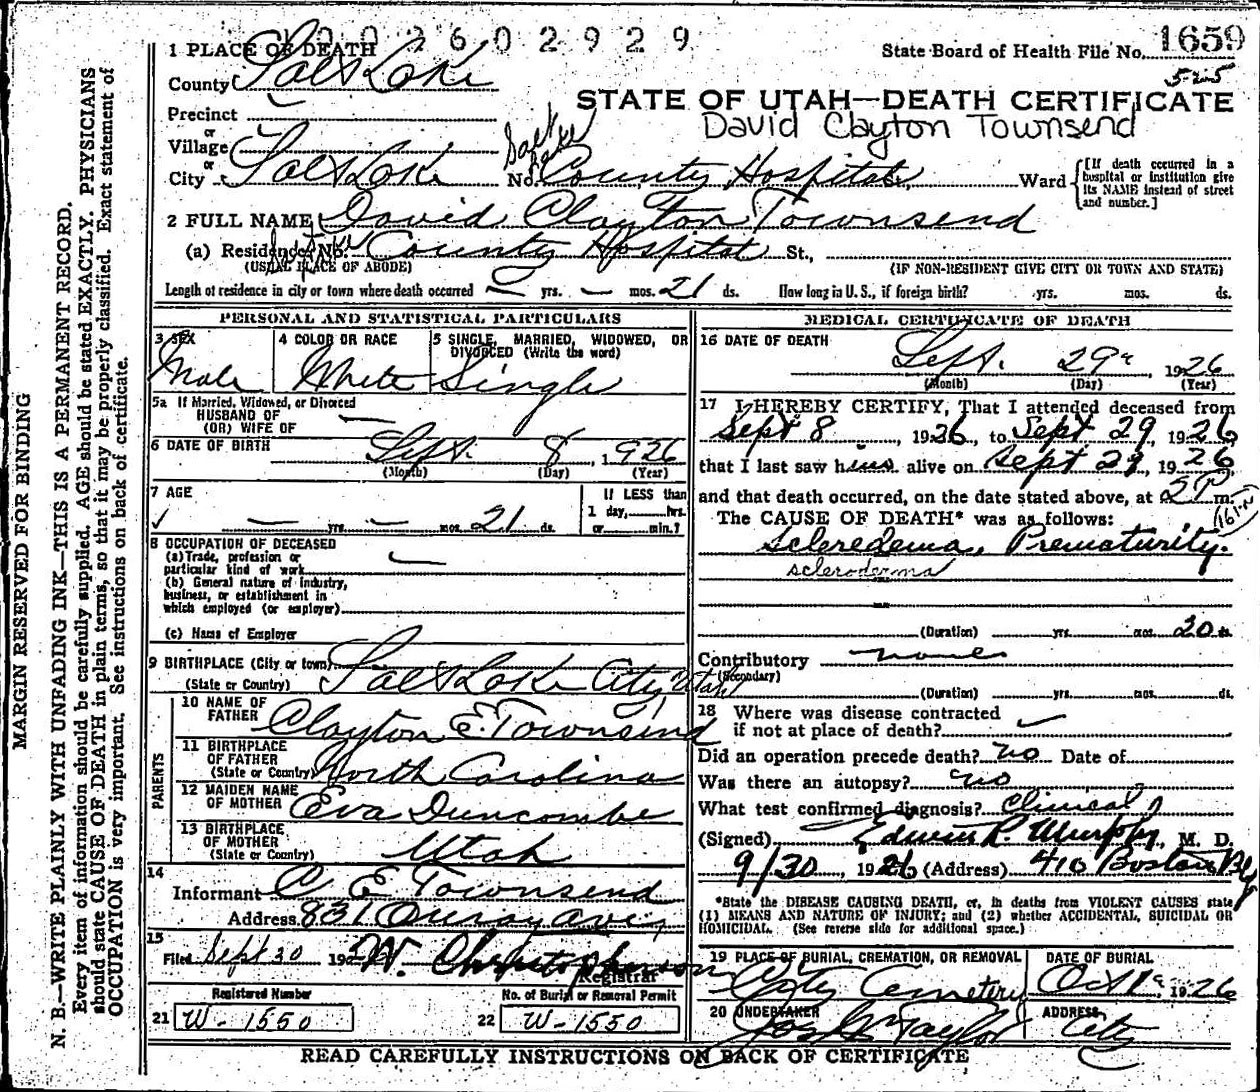 2602929
State Board of Health File No. 1659
525
1 PLACE OF DEATH
County Salt Lake
STATE OF UTAH—DEATH CERTIFICATE
Precinct
David Clayton Townsend
or
Village
or
City Salt Lake No. Salt Lake County Hospital St., Ward [If death occurred in a hospital or institution give its NAME instead of street and number.]
2 FULL NAME David Clayton Townsend
(a) Residence No. County Hospital St.,
(USUAL PLACE OF ABODE) (IF NON-RESIDENT GIVE CITY OR TOWN AND STATE)
Length of residence in city or town where death occurred — yrs. — mos. 21 ds. How long in U. S., if foreign birth? yrs. mos. ds.
PERSONAL AND STATISTICAL PARTICULARS
3 SEX 4 COLOR OR RACE 5 SINGLE, MARRIED, WIDOWED, OR DIVORCED (Write the word)
Male White Single
5a If Married, Widowed, or Divorced
HUSBAND OF
(OR) WIFE OF —
6 DATE OF BIRTH Sept. 8, 1926
(Month) (Day) (Year)
7 AGE If LESS than
1 day, hrs.
— yrs. — mos. 21 ds. or min.?
8 OCCUPATION OF DECEASED
(a) Trade, profession or
particular kind of work
(b) General nature of industry,
business, or establishment in
which employed (or employer)
(c) Name of Employer
9 BIRTHPLACE (City or town) Salt Lake City, Utah
(State or Country)
PARENTS
10 NAME OF
FATHER Clayton E. Townsend
11 BIRTHPLACE
OF FATHER
(State or Country) North Carolina
12 MAIDEN NAME
OF MOTHER Eva Duncombe
13 BIRTHPLACE
OF MOTHER
(State or Country) Utah
14
Informant C E Townsend
Address 831 Ouray Ave,
15
Filed Sept 30 192 W. Christopherson
Registrar
Registered Number No. of Burial or Removal Permit
21 W-1550 22 W-1550
MEDICAL CERTIFICATE OF DEATH
16 DATE OF DEATH
Sept. 29 1926
(Month) (Day) (Year)
17 I HEREBY CERTIFY, That I attended deceased from
Sept 8, 1926, to Sept 29, 1926
that I last saw him alive on Sept 29, 1926
and that death occurred, on the date stated above, at 2 P m.
The CAUSE OF DEATH* was as follows:
Scleredema, Prematurity.
scleroderma
(Duration) yrs. mos. 20 ds.
Contributory none
(Secondary)
(Duration) yrs. mos. ds.
18 Where was disease contracted
if not at place of death?
Did an operation precede death? no Date of
Was there an autopsy? no
What test confirmed diagnosis? Clinical
(Signed) Edwin R. Murphy, M. D.
9/30, 1926 (Address) 410 Boston Bldg
*State the DISEASE CAUSING DEATH, or, in deaths from VIOLENT CAUSES state
(1) MEANS AND NATURE OF INJURY; and (2) whether ACCIDENTAL, SUICIDAL OR
HOMICIDAL. (See reverse side for additional space.)
19 PLACE OF BURIAL, CREMATION, OR REMOVAL DATE OF BURIAL
City Cemetery Oct 1, 1926
20 UNDERTAKER ADDRESS
Taylor City
READ CAREFULLY INSTRUCTIONS ON BACK OF CERTIFICATE
MARGIN RESERVED FOR BINDING
N. B.—WRITE PLAINLY WITH UNFADING INK—THIS IS A PERMANENT RECORD.
Every item of information should be carefully supplied. AGE should be stated EXACTLY. PHYSICIANS
should state CAUSE OF DEATH in plain terms, so that it may be properly classified. Exact statement of
OCCUPATION is very important. See instructions on back of certificate.